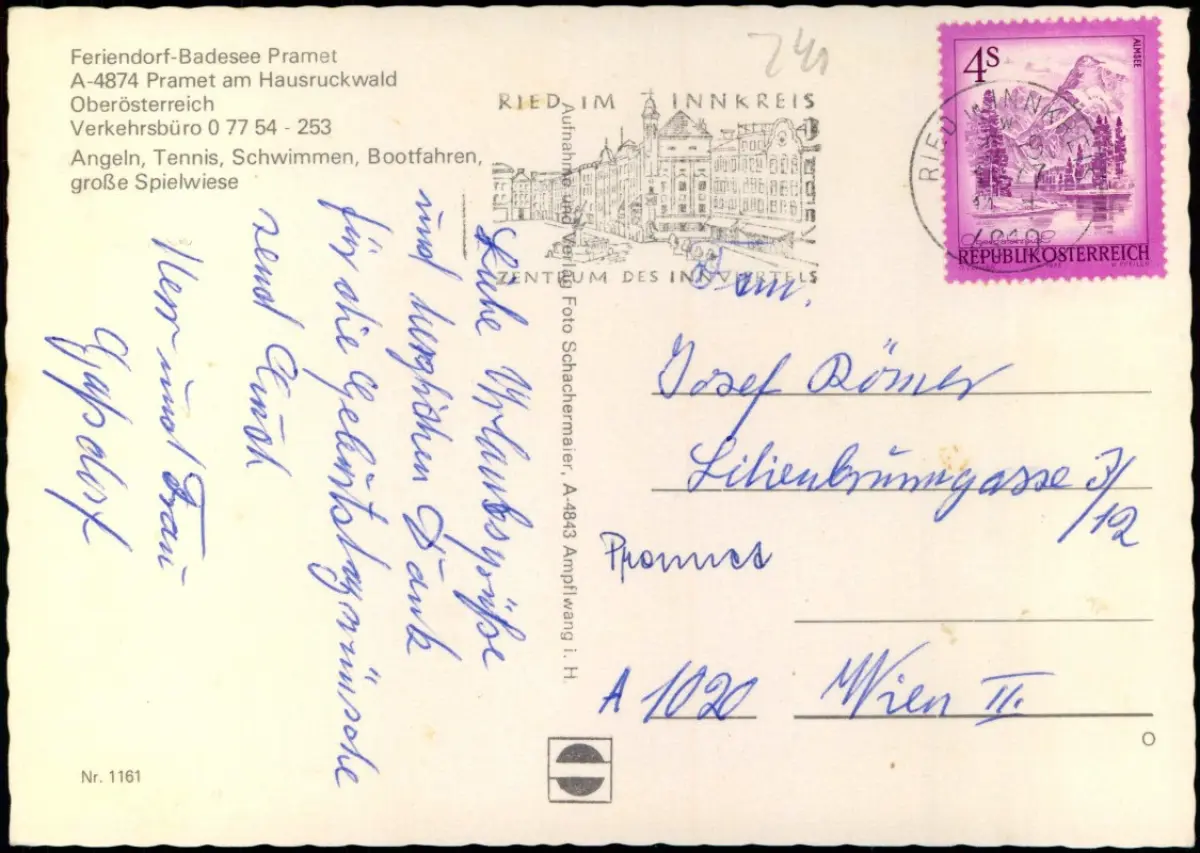 Feriendorf-Badesee Pramet
A-4874 Pramet am Hausruckwald
Oberösterreich
Verkehrsbüro 0 77 54 - 253
Angeln, Tennis, Schwimmen, Bootfahren,
große Spielwiese
Liebe Urlaubsgrüße
und herzlichen Dank
für die Geburtstagswünsche
send Euch
Herr und Frau
Nr. 1161
Aufnahme und Verlag Foto Schachermaier, A-4843 Ampflwang i. H.
RIED IM INNKREIS
ZENTRUM DES INNVIERTELS
RIED IM INNKREIS
4S
ALMSEE
REPUBLIK ÖSTERREICH
Fam.
Josef Römer
Lilienbrunngasse 3/
/12
Pramet
A 1020 Wien II.